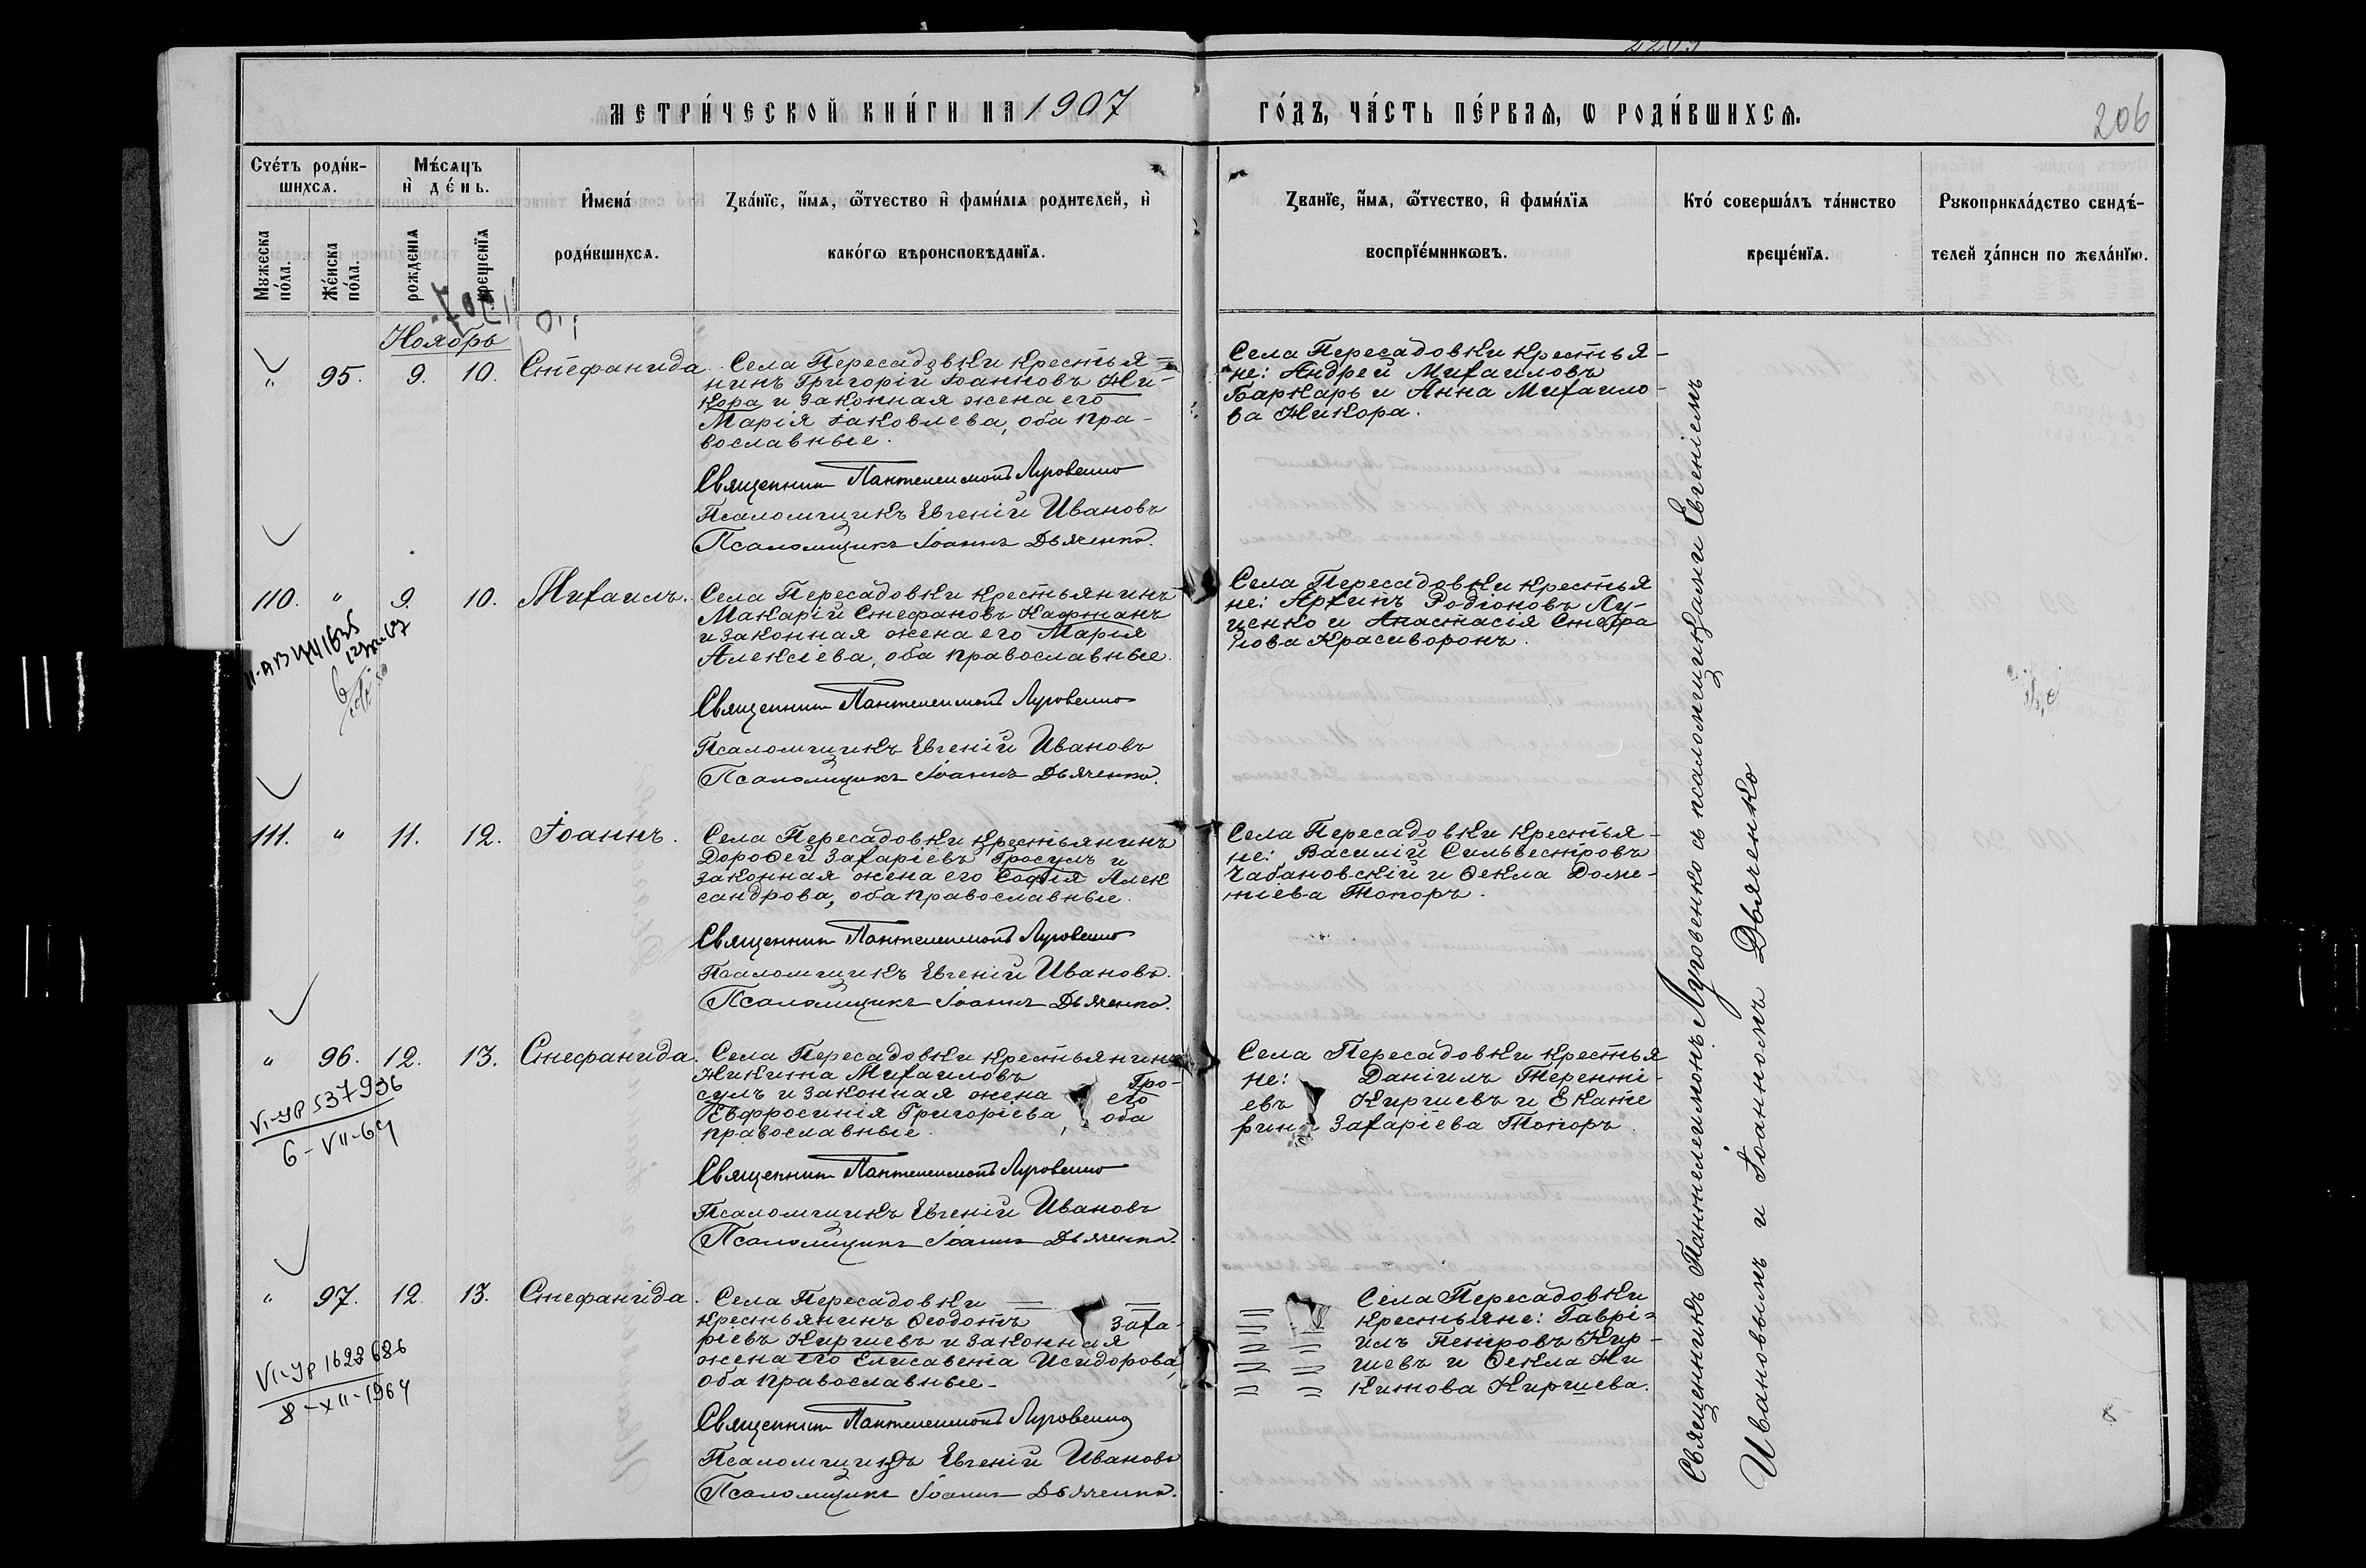 МЕТРИ́ЧЕСКОЙ КНИ́ГИ НА 1907 ГО́ДЪ, ЧА́СТЬ ПЕ́РВАѦ, Ѡ РОДИ́ВШИХСѦ.
206
Сче́тъ роди́в-
шихсѧ.
Мꙋжеска
по́ла.
Же́нска
по́ла.
Мѣ́сѧцъ
и҆ де́нь.
рожденїѧ
крещенїѧ
И҆мена́
роди́вшихсѧ.
Зва́нїе, и҆́мѧ, ѻ҆́тчество и҆ фами́лїѧ родителей, и҆
како́гѡ вѣроисповѣданїѧ.
Званїе, и҆́мѧ, ѻ҆́тчество, и҆ фами́лїѧ
воспрїе́мникѡвъ.
Кто́ соверша́лъ та́инство
креще́нїѧ.
Рꙋкоприкла́дство свидѣ́-
телей за́писи по жела́нїю.
Ноябрь
" 95. 9. 10. Стефанида
Села Пересадовки крестья=
нинъ Григорій Іоанновъ Жи-
кора и законная жена его
Марія Іаковлева, оба пра-
вославные.
Священник Пантелеимонъ Луговенко
Псаломщикъ Евгеній Ивановъ
Псаломщикъ Іоаннъ Дьяченко.
Села Пересадовки крестья-
не: Андрей Михаиловъ
Баркарь и Анна Михаило-
ва Жикора.
110. " 9. 10. Михаилъ.
Села Пересадовки крестьянинъ
Макарій Стефановъ Кафтанъ
и законная жена его Марія
Алексіева, оба православные.
Священник Пантелеимонъ Луговенко
Псаломщикъ Евгеній Ивановъ
Псаломщикъ Іоаннъ Дьяченко.
Села Пересадовки крестья
не: Архипъ Родіоновъ Лу-
ценко и Анастасія Стефа
нова Красиворонъ.
111. " 11. 12. Іоаннъ.
Села Пересадовки крестьянинъ
Дороѳей Захаріевъ Гросулъ и
законная жена его Софія Алек
сандрова, оба православные.
Священник Пантелеимонъ Луговенко
Псаломщикъ Евгеній Ивановъ.
Псаломщикъ Іоаннъ Дьяченко.
Села Пересадовки крестья-
не: Василій Сильвестровъ
Чабановскій и Ѳекла Доме-
тіева Топоръ.
" 96. 12. 13. Стефанида.
VI-УР 537936
6-VII-64
Села Пересадовки крестьянинъ
Никита Михаиловъ Гро-
сулъ и законная жена его
Евфросинія Григоріева, оба
православные.
Священник Пантелеимонъ Луговенко
Псаломщикъ Евгеній Ивановъ
Псаломщикъ Іоаннъ Дьяченко.
Села Пересадовки крестья
не: Даніилъ Теренті-
евъ Киргиевъ и Екате
рина Захаріева Топоръ.
" 97. 12. 13. Стефанида.
VI-УР 1623686
8-XII-1964
Села Пересадовки
крестьянинъ Ѳеодотъ Заха-
ріевъ Киргиевъ и законная
жена его Елисавета Исидорова,
оба православные.
Священник Пантелеимонъ Луговенко
Псаломщикъ Евгеній Ивановъ
Псаломщикъ Іоаннъ Дьяченко.
Села Пересадовки
крестьяне: Гаврі=
илъ Петровъ Кир-
гиевъ и Ѳекла Ни
китова Киргиева.
Священникъ Пантелеимонъ Луговенко съ псаломщиками Евгеніемъ
Ивановымъ и Іоанномъ Дьяченко